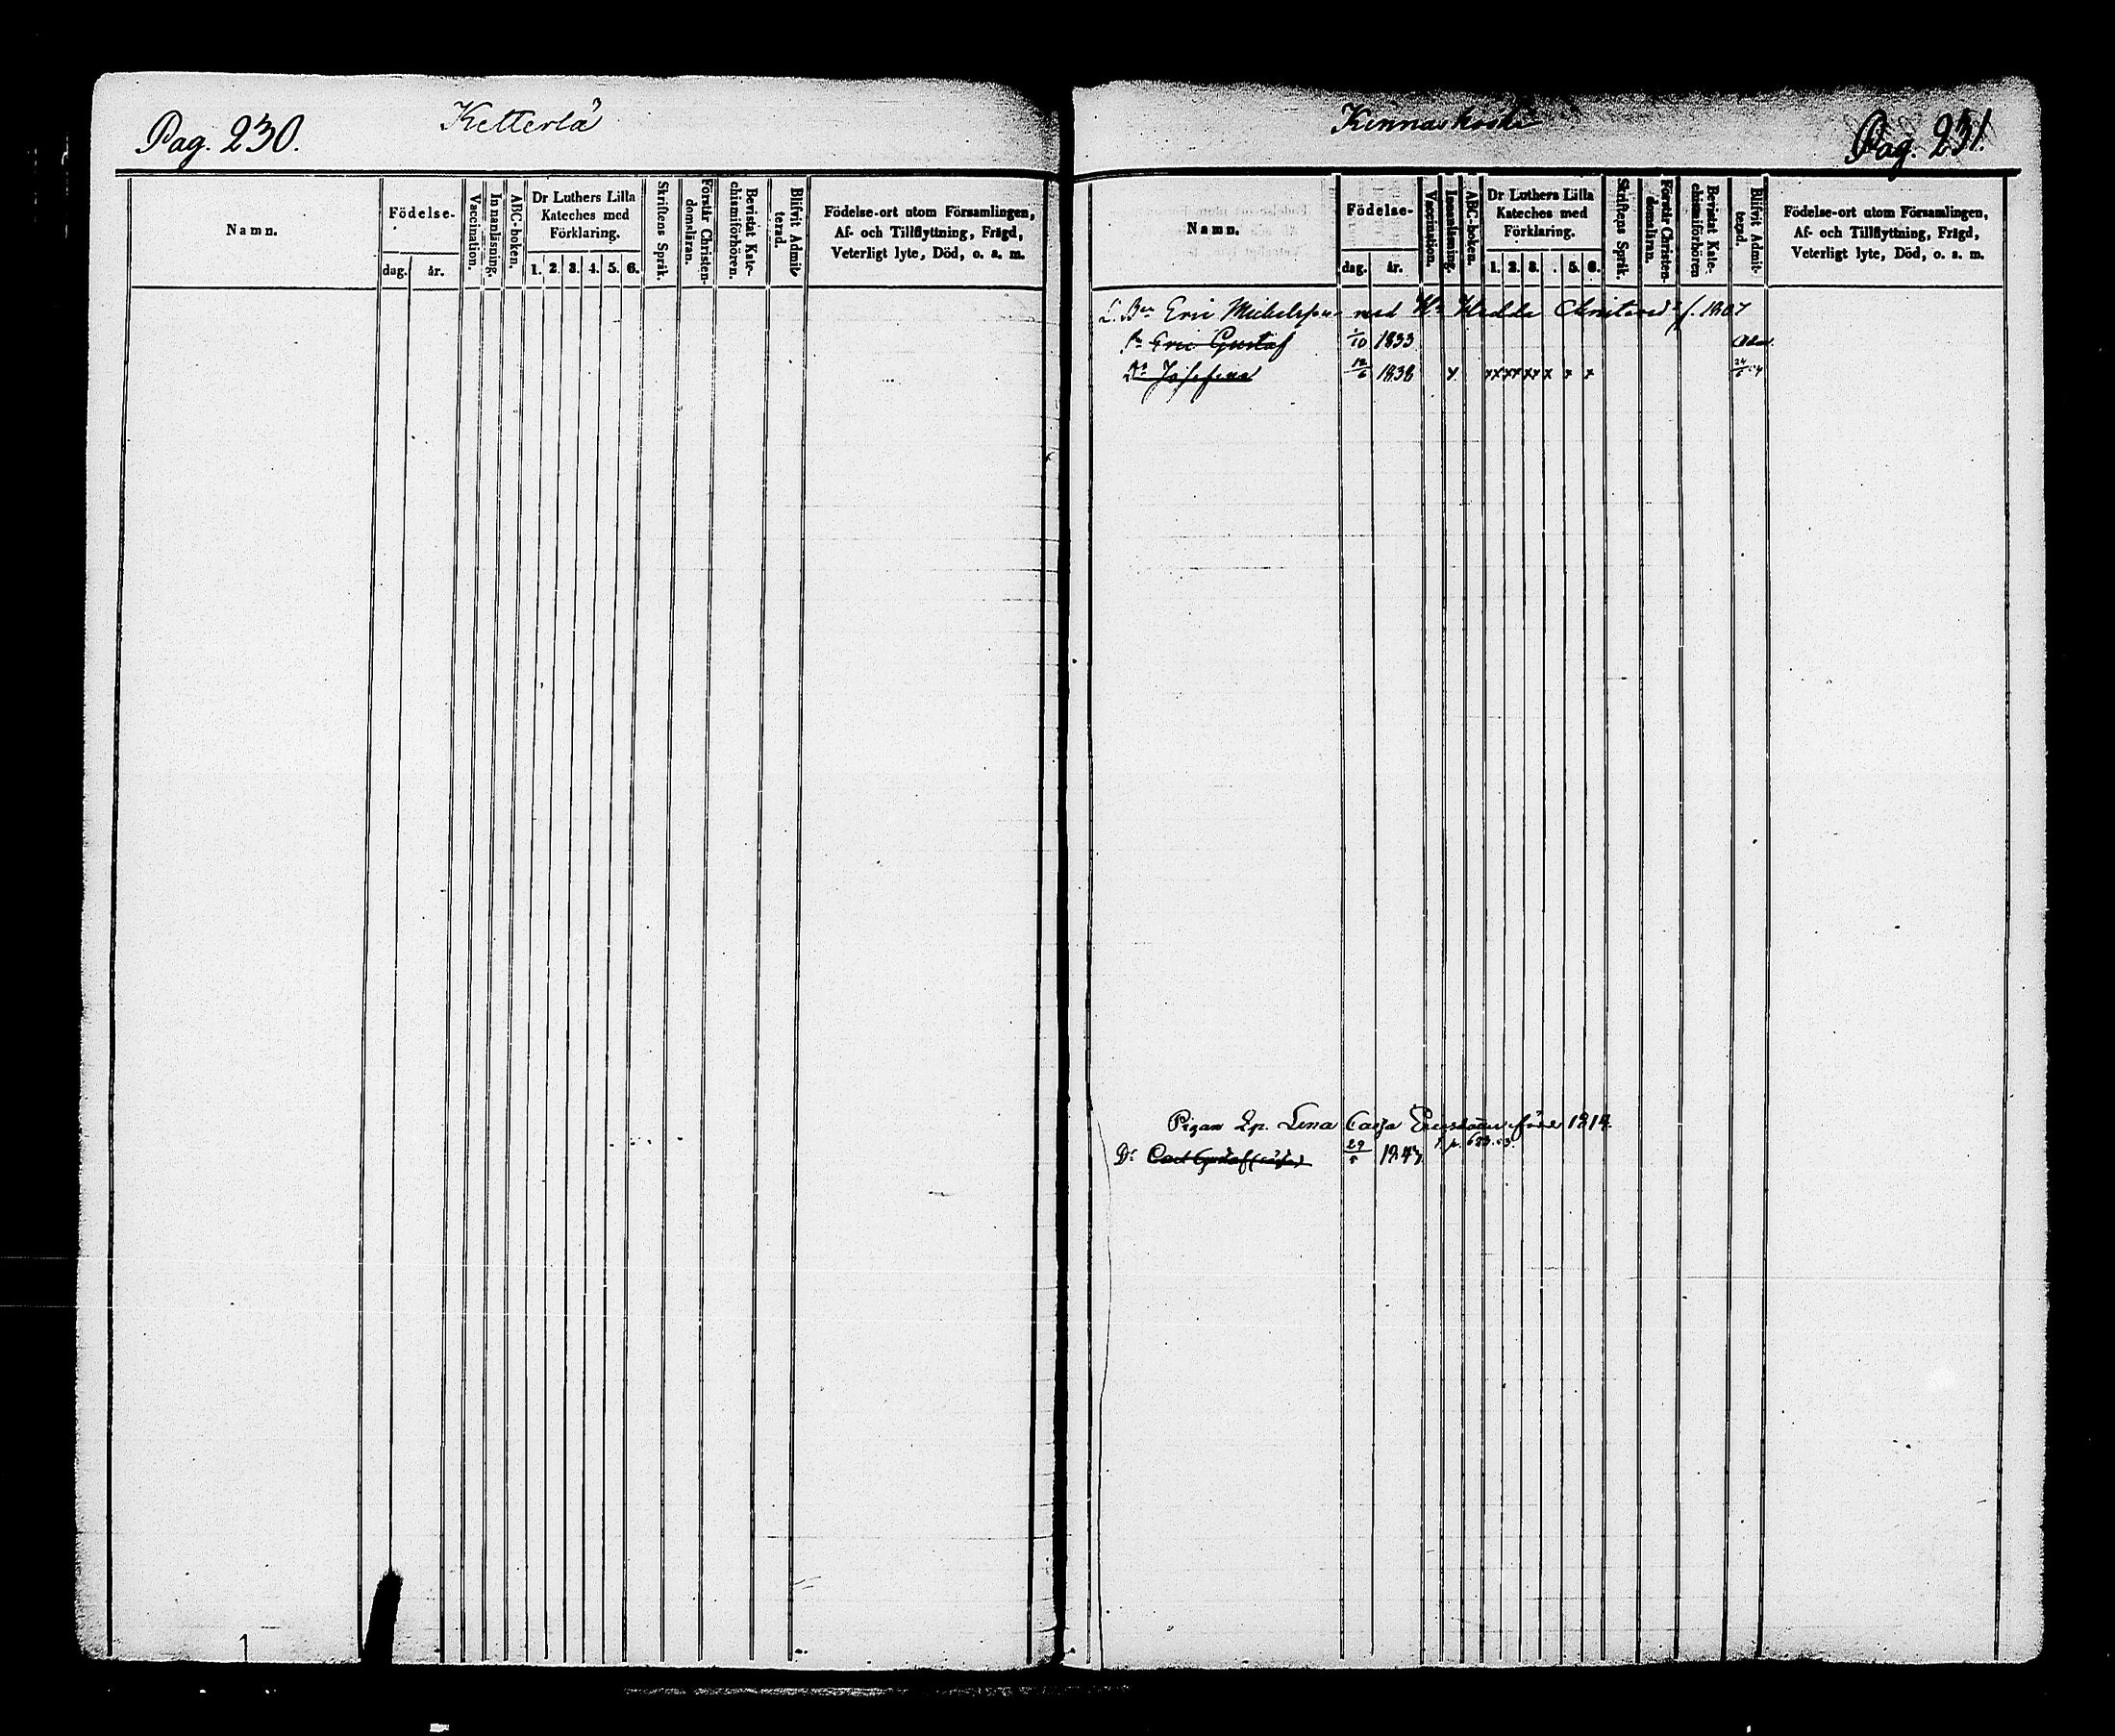 Pag. 230.
Ketterlä
Namn.
Födelse-
dag. år.
Vaccination.
Innanläsning.
ABC-boken.
Dr Luthers Lilla
Kateches med
Förklaring.
1. 2. 3. 4. 5. 6.
Skriftens Språk.
Förstår Christen-
domsläran.
Bevistat Kate-
chismiförhören.
Blifvit Admit-
terad.
Födelse-ort utom Församlingen,
Af- och Tillflyttning, Frägd,
Veterligt lyte, Död, o. s. m.
Kinnaskoski
Pag. 231.
Namn.
Födelse-
dag. år.
Vaccination.
Innanläsning.
ABC-boken.
Dr Luthers Lilla
Kateches med
Förklaring.
1. 2. 3. . 5. 6.
Skriftens Språk.
Förstår Christen-
domsläran.
Bevistat Kate-
chismiförhören
Blifvit Admit-
terad.
Födelse-ort utom Församlingen,
Af- och Tillflyttning, Frägd,
Veterligt lyte, Död, o. s. m.
Eric Michelsson med Hu Hedda f. 1807
Eric Gustaf 1/10 1833
Dr Josefina 12/6 1838 x x x x x x x x x 24/6
Pigan Lena Cajsa 1814
Carl Gustaf 29/5 1843